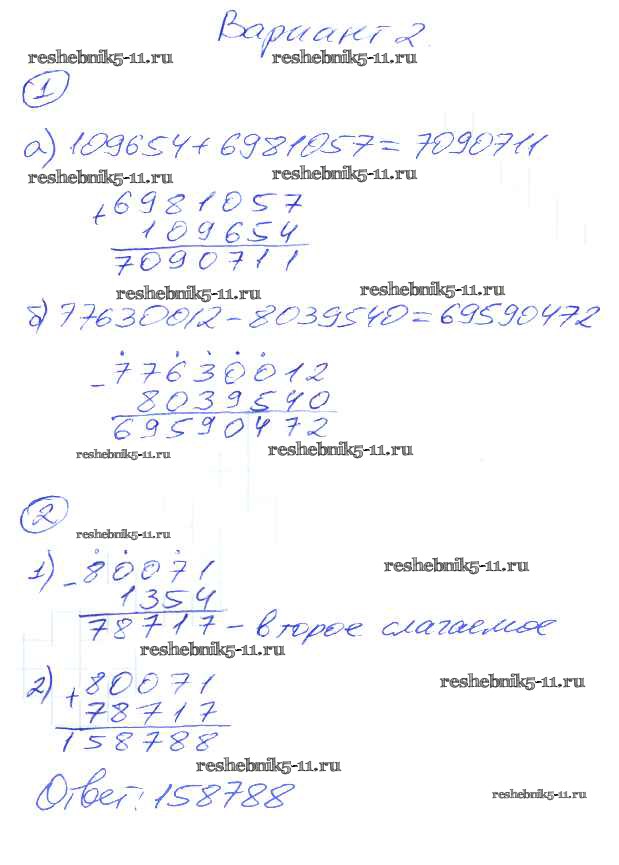 Вариант 2.
reshebnik5-11.ru reshebnik5-11.ru
1
а) 109654 + 6981057 = 7090711
reshebnik5-11.ru reshebnik5-11.ru
+ 6981057
109654
7090711
reshebnik5-11.ru reshebnik5-11.ru
б) 77630012 - 8039540 = 69590472
- 77630012
8039540
69590472
reshebnik5-11.ru reshebnik5-11.ru
2
reshebnik5-11.ru
1) - 80071 reshebnik5-11.ru
1354
78717 - второе слагаемое
reshebnik5-11.ru
2) + 80071 reshebnik5-11.ru
78717
158788
reshebnik5-11.ru
Ответ: 158788 reshebnik5-11.ru